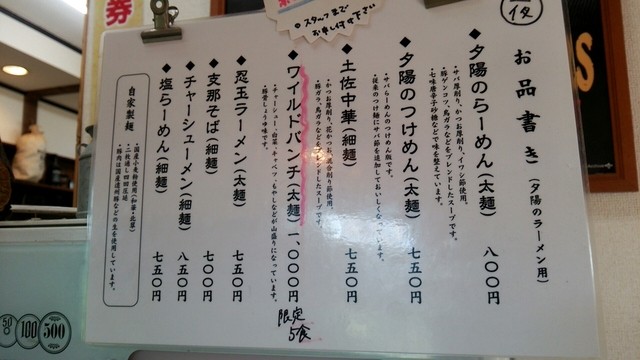 お品書き(夕陽のラーメン用)
◆夕陽のらーめん(太麺) 八〇〇円
・サバ厚削り、かつお厚削り、イワシ節使用。
・豚ゲンコツ、鳥ガラなどをブレンドしたスープです。
・七味唐辛子砂糖などで味を整えています。
◆夕陽のつけめん(太麺) 七五〇円
・サバらーめんのつけめん版です。
・従来のつけ麺にサバ節を追加しておいしくなっています。
◆土佐中華(細麺) 七五〇円
・かつお厚削り、花かつお、混合削り節使用。
・豚ガラ、鳥ガラなどをブレンドしたスープです。
◆ワイルドパンチ(太麺) 一、〇〇〇円
限定
5食
・チャーシュー、白菜、キャベツ、もやしなどが山盛りになっています。
・豚骨しょうゆ味です。
◆忍玉ラーメン(太麺) 七五〇円
◆支那そば(細麺) 七〇〇円
◆チャーシューメン(細麺) 八五〇円
◆塩らーめん(細麺) 七五〇円
自家製麺
・国産小麦粉使用
・二枚通し四回圧延
・豚肉は国産
などの生を使用しています。
券
スタッフまで
お申し付け下さい
夜
50
100
500
S